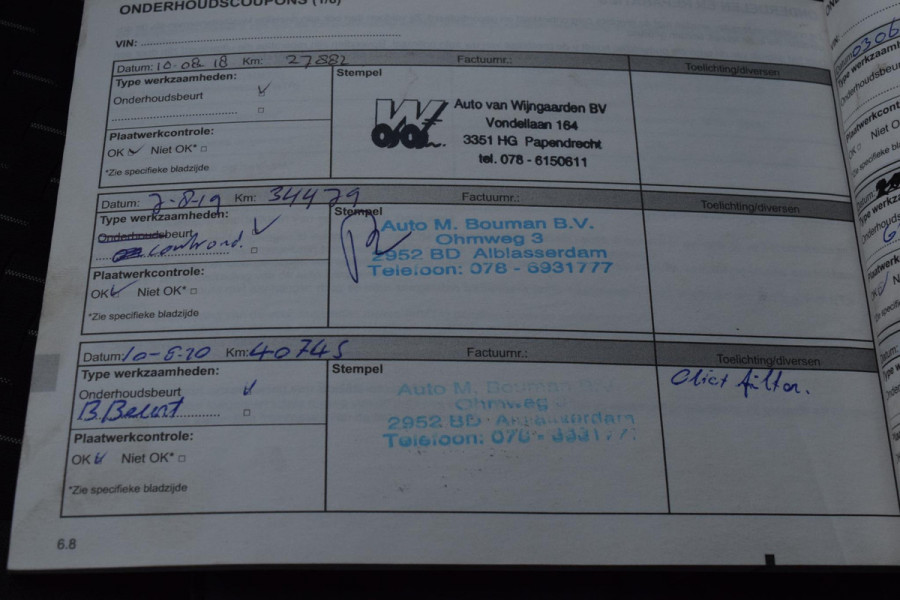 ONDERHOUDSCOUPONS (1/6)
VIN:
Datum: 10-08-18 Km: 27882 Factuurnr.: Toelichting/diversen
Type werkzaamheden: Stempel
Onderhoudsbeurt
Auto van Wijngaarden BV
Vondellaan 164
3351 HG Papendrecht
tel. 078 - 6150611
Plaatwerkcontrole:
OK Niet OK*
*Zie specifieke bladzijde
Datum: 7-8-19 Km: 34479 Factuurnr.: Toelichting/diversen
Type werkzaamheden: Stempel
Onderhoudsbeurt
Auto M. Bouman B.V.
Ohmweg 3
2952 BD Alblasserdam
Telefoon: 078 - 6931777
Plaatwerkcontrole:
OK Niet OK*
*Zie specifieke bladzijde
Datum: 10-6-20 Km: 40745 Factuurnr.: Toelichting/diversen
Type werkzaamheden: Stempel
Onderhoudsbeurt
B.Beurt
Auto M. Bouman B.V.
Ohmweg
2952 BD Alblasserdam
Telefoon: 078 - 6931777
filter.
Plaatwerkcontrole:
OK Niet OK*
*Zie specifieke bladzijde
6.8